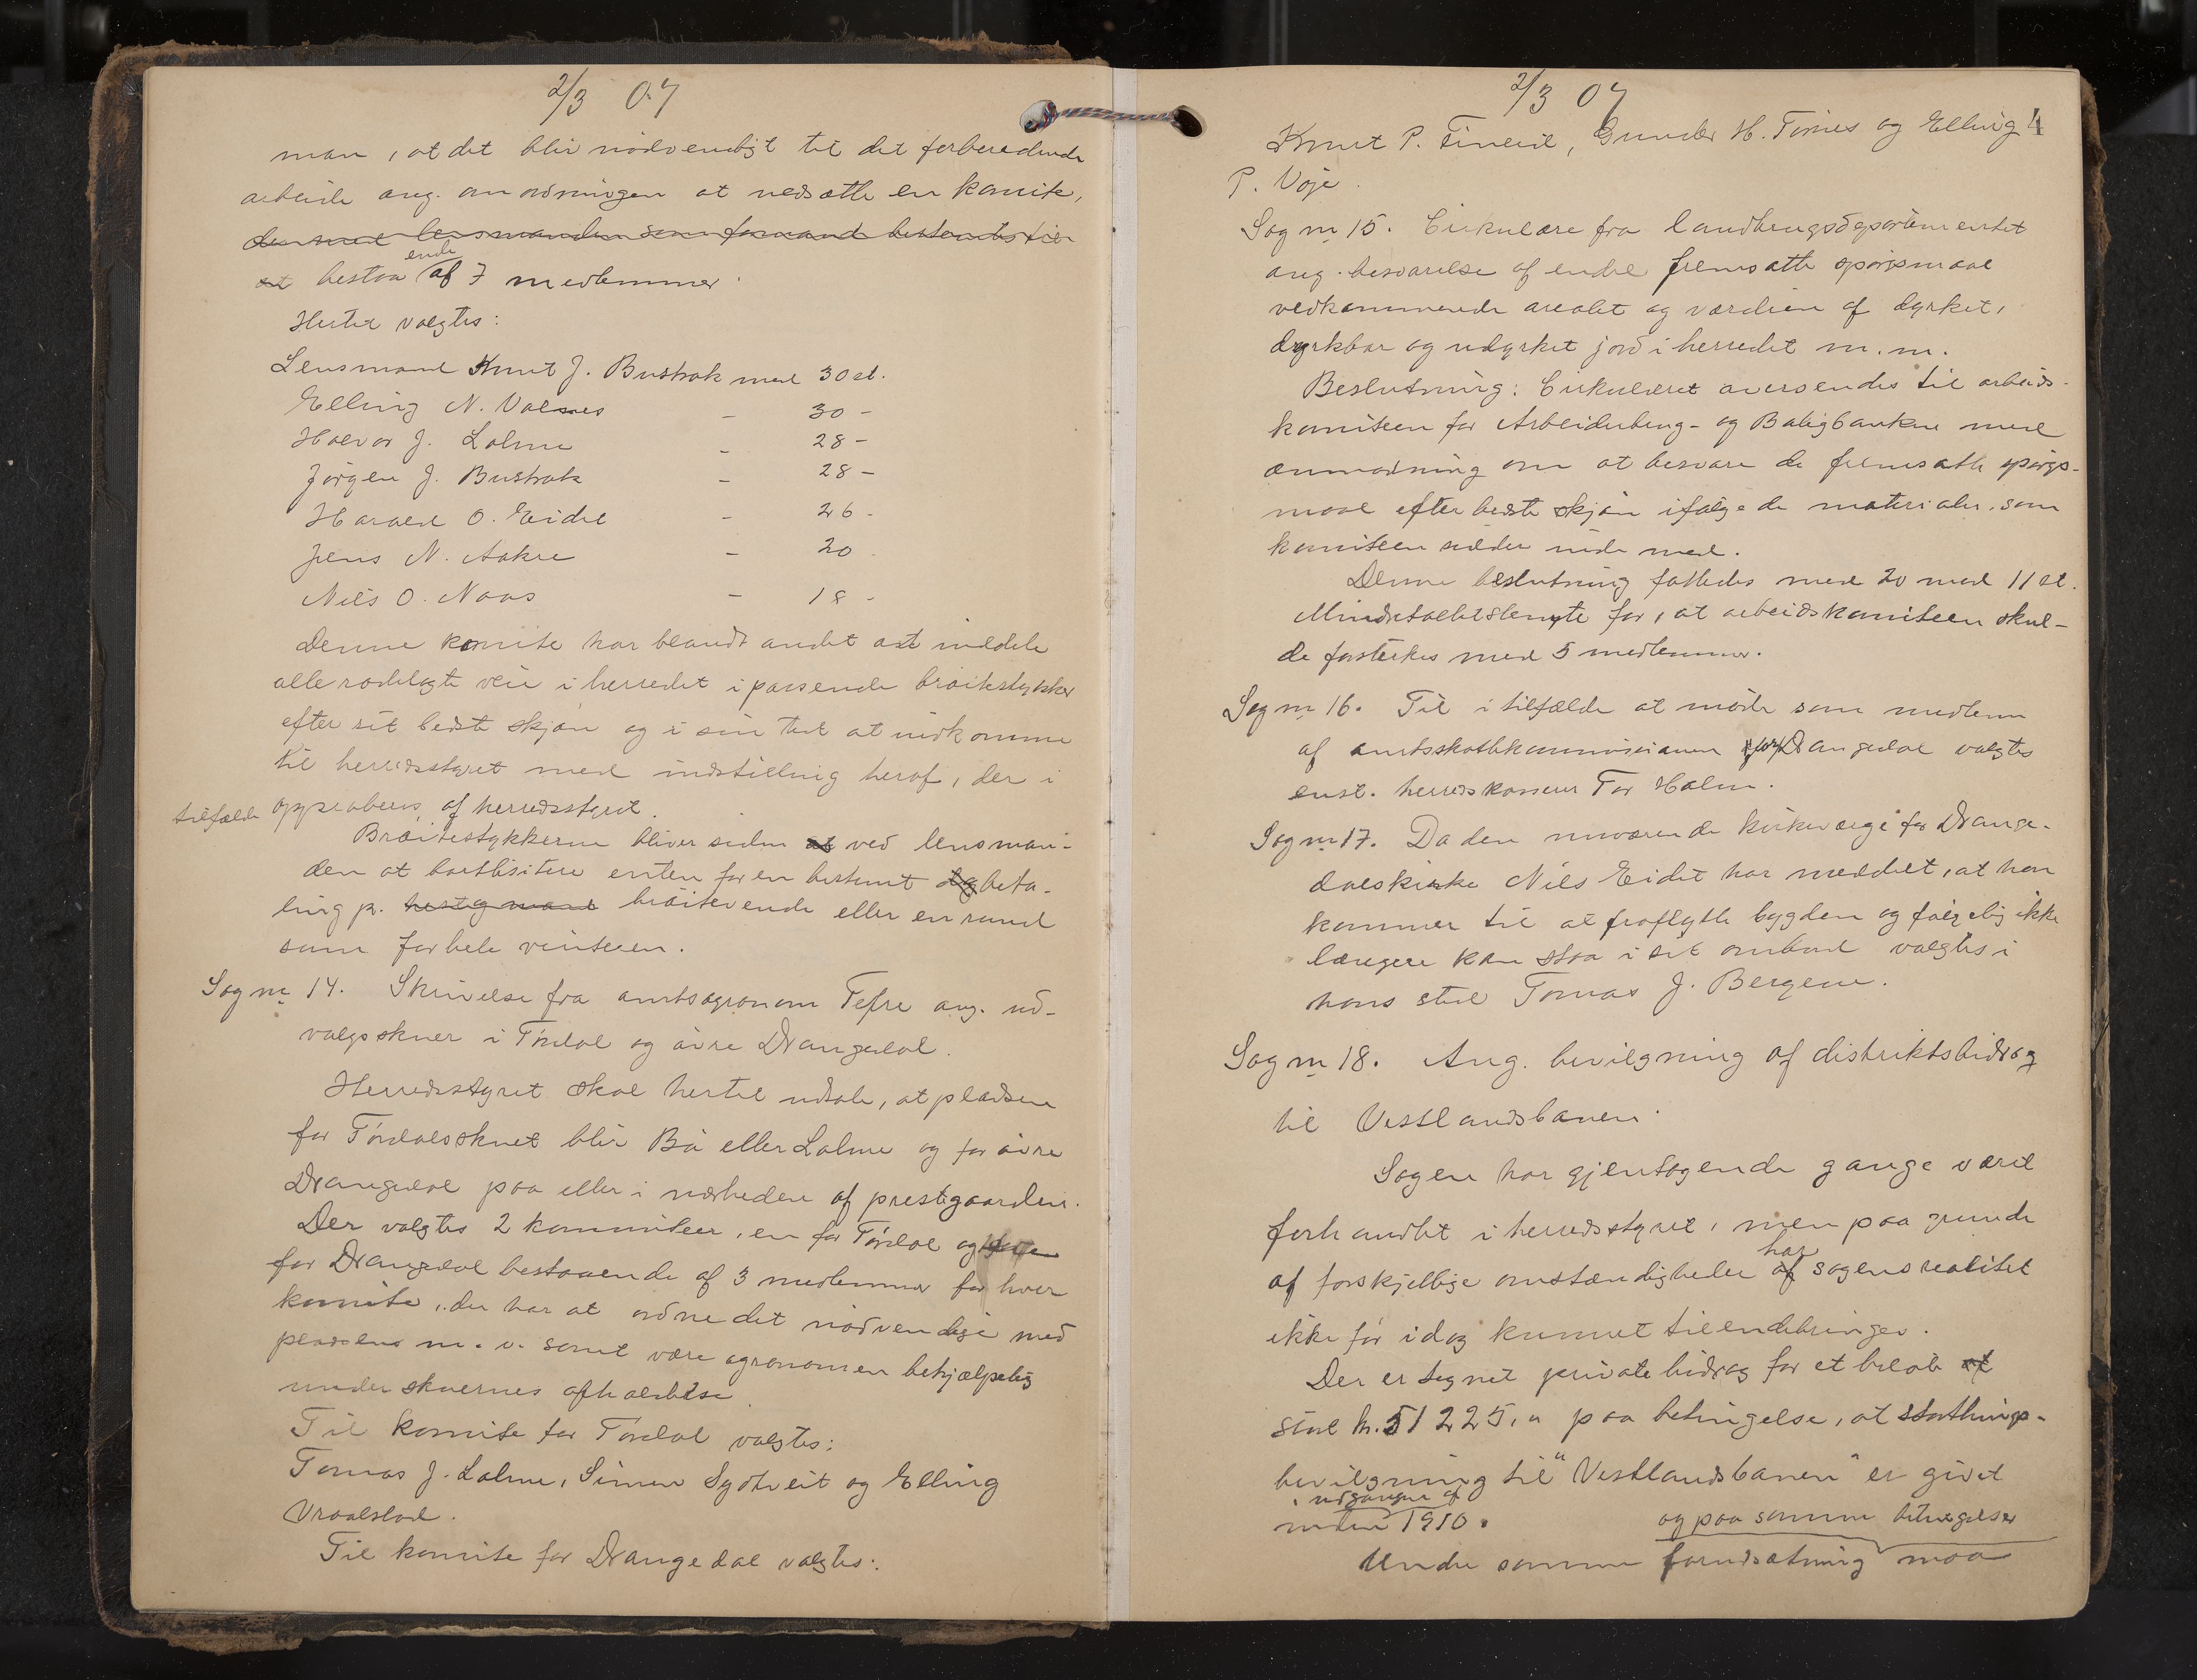 2/3 07
man, at det blir nødvendigt til det forberedende
arbeide ang. anordningen at nedsætte en komite,
der med lensmanden som formand bestaar
at bestaaende af 7 medlemmer.
Hertil valgtes:
Lensmand Knut J. Bustrak med 30 st.
Elling N. Valsnes - 30 -
Halvor J. Lalme - 28 -
Jørgen J. Bustrak - 28 -
Harald O. Eidet - 26 -
Jens N. Aakre - 20 -
Niels O. Naas - 18 -
Denne komite har blandt andet at inddele
alle rodelagte veie i herredet i passende brøitestykker
efter sit bedste skjøn og i sin tid at indkomme
til herredsstyret med indstilling heraf, der i
tilfælde approberes af herredsstyret.
Brøitestykkerne bliver siden at ved lensman-
den at bortlisitere enten for en bestemt dag beta-
ling pr. hest og mand brøitevende eller en rund
sum for hele vinteren.
Sag nr 14. Skrivelse fra amtsagronom Tefre ang. ud-
valgsskuer i Tørdal og øvre Drangedal.
Herredsstyret skal hertil udtale, at pladsen
for Tørdalsskuet blir Bø eller Lalme og for øvre
Drangedal paa eller i nærheden af prestegaarden.
Der valgtes 2 kommiteer, en for Tørdal og en
for Drangedal bestaaende af 3 medlemmer for hver
komite, der har at ordne det nødvendige med
pladsen m. v. samt være agronomen behjælpelig
under skuernes afholdelse.
Til komite for Tørdal valgtes:
Tomas J. Lalme, Simen Sydtveit og Elling
Vraalstad.
Til komite for Drangedal valgtes:
2/3 07
4
Knut P. Gunder H. Tørnes og Elling
P. Voje.
Sag nr 15. Cirkulære fra landbrugsdepartementet
ang. besvarelse af endel fremsatte spørsmaal
vedkommende arealet og værdien af dyrket,
dyrkbar og udyrket jord i herredet m. m.
Beslutning: Cirkulæret oversendes til arbeids-
komiteen for Arbeiderbrug- og Boligbanken med
anmodning om at besvare de fremsatte spørgs-
maal efter bedste skjøn ifølge de materialer, som
komiteen sidder inde med.
Denne beslutning fattedes med 20 mod 11 st.
Mindretallet stemte for, at arbeidskomiteen skul-
de forstærkes med 5 medlemmer.
Sag nr 16. Til i tilfælde at møde som medlem
af amtsskattekommisionen for Drangedal valgtes
enst. herredskasserer Tor Holm.
Sag nr 17. Da den nuværende kirkeværge for Drange-
dalskirke Niels Eidet har meddelt, at han
kommer til at fraflytte bygden og følgelig ikke
længere kan staa i sit ombud valgtes i
hans sted Tomas J. Bergene.
Sag nr 18. Ang. bevilgning af distriktsbidrag
til Vestlandsbanen.
Sagen har gjentagende gange været
forhandlet i herredsstyret, men paa grund
af forskjellige omstændigheder har sagens realitet
ikke før idag kunnet tilendebringes.
Der er tegnet private bidrag for et beløb af
stort kr. 51225,00 paa betingelse, at storthings-
bevilgning til "Vestlandsbanen" er givet
inden udgangen af 1910.
Under samme forudsætning og paa samme betingelser maa